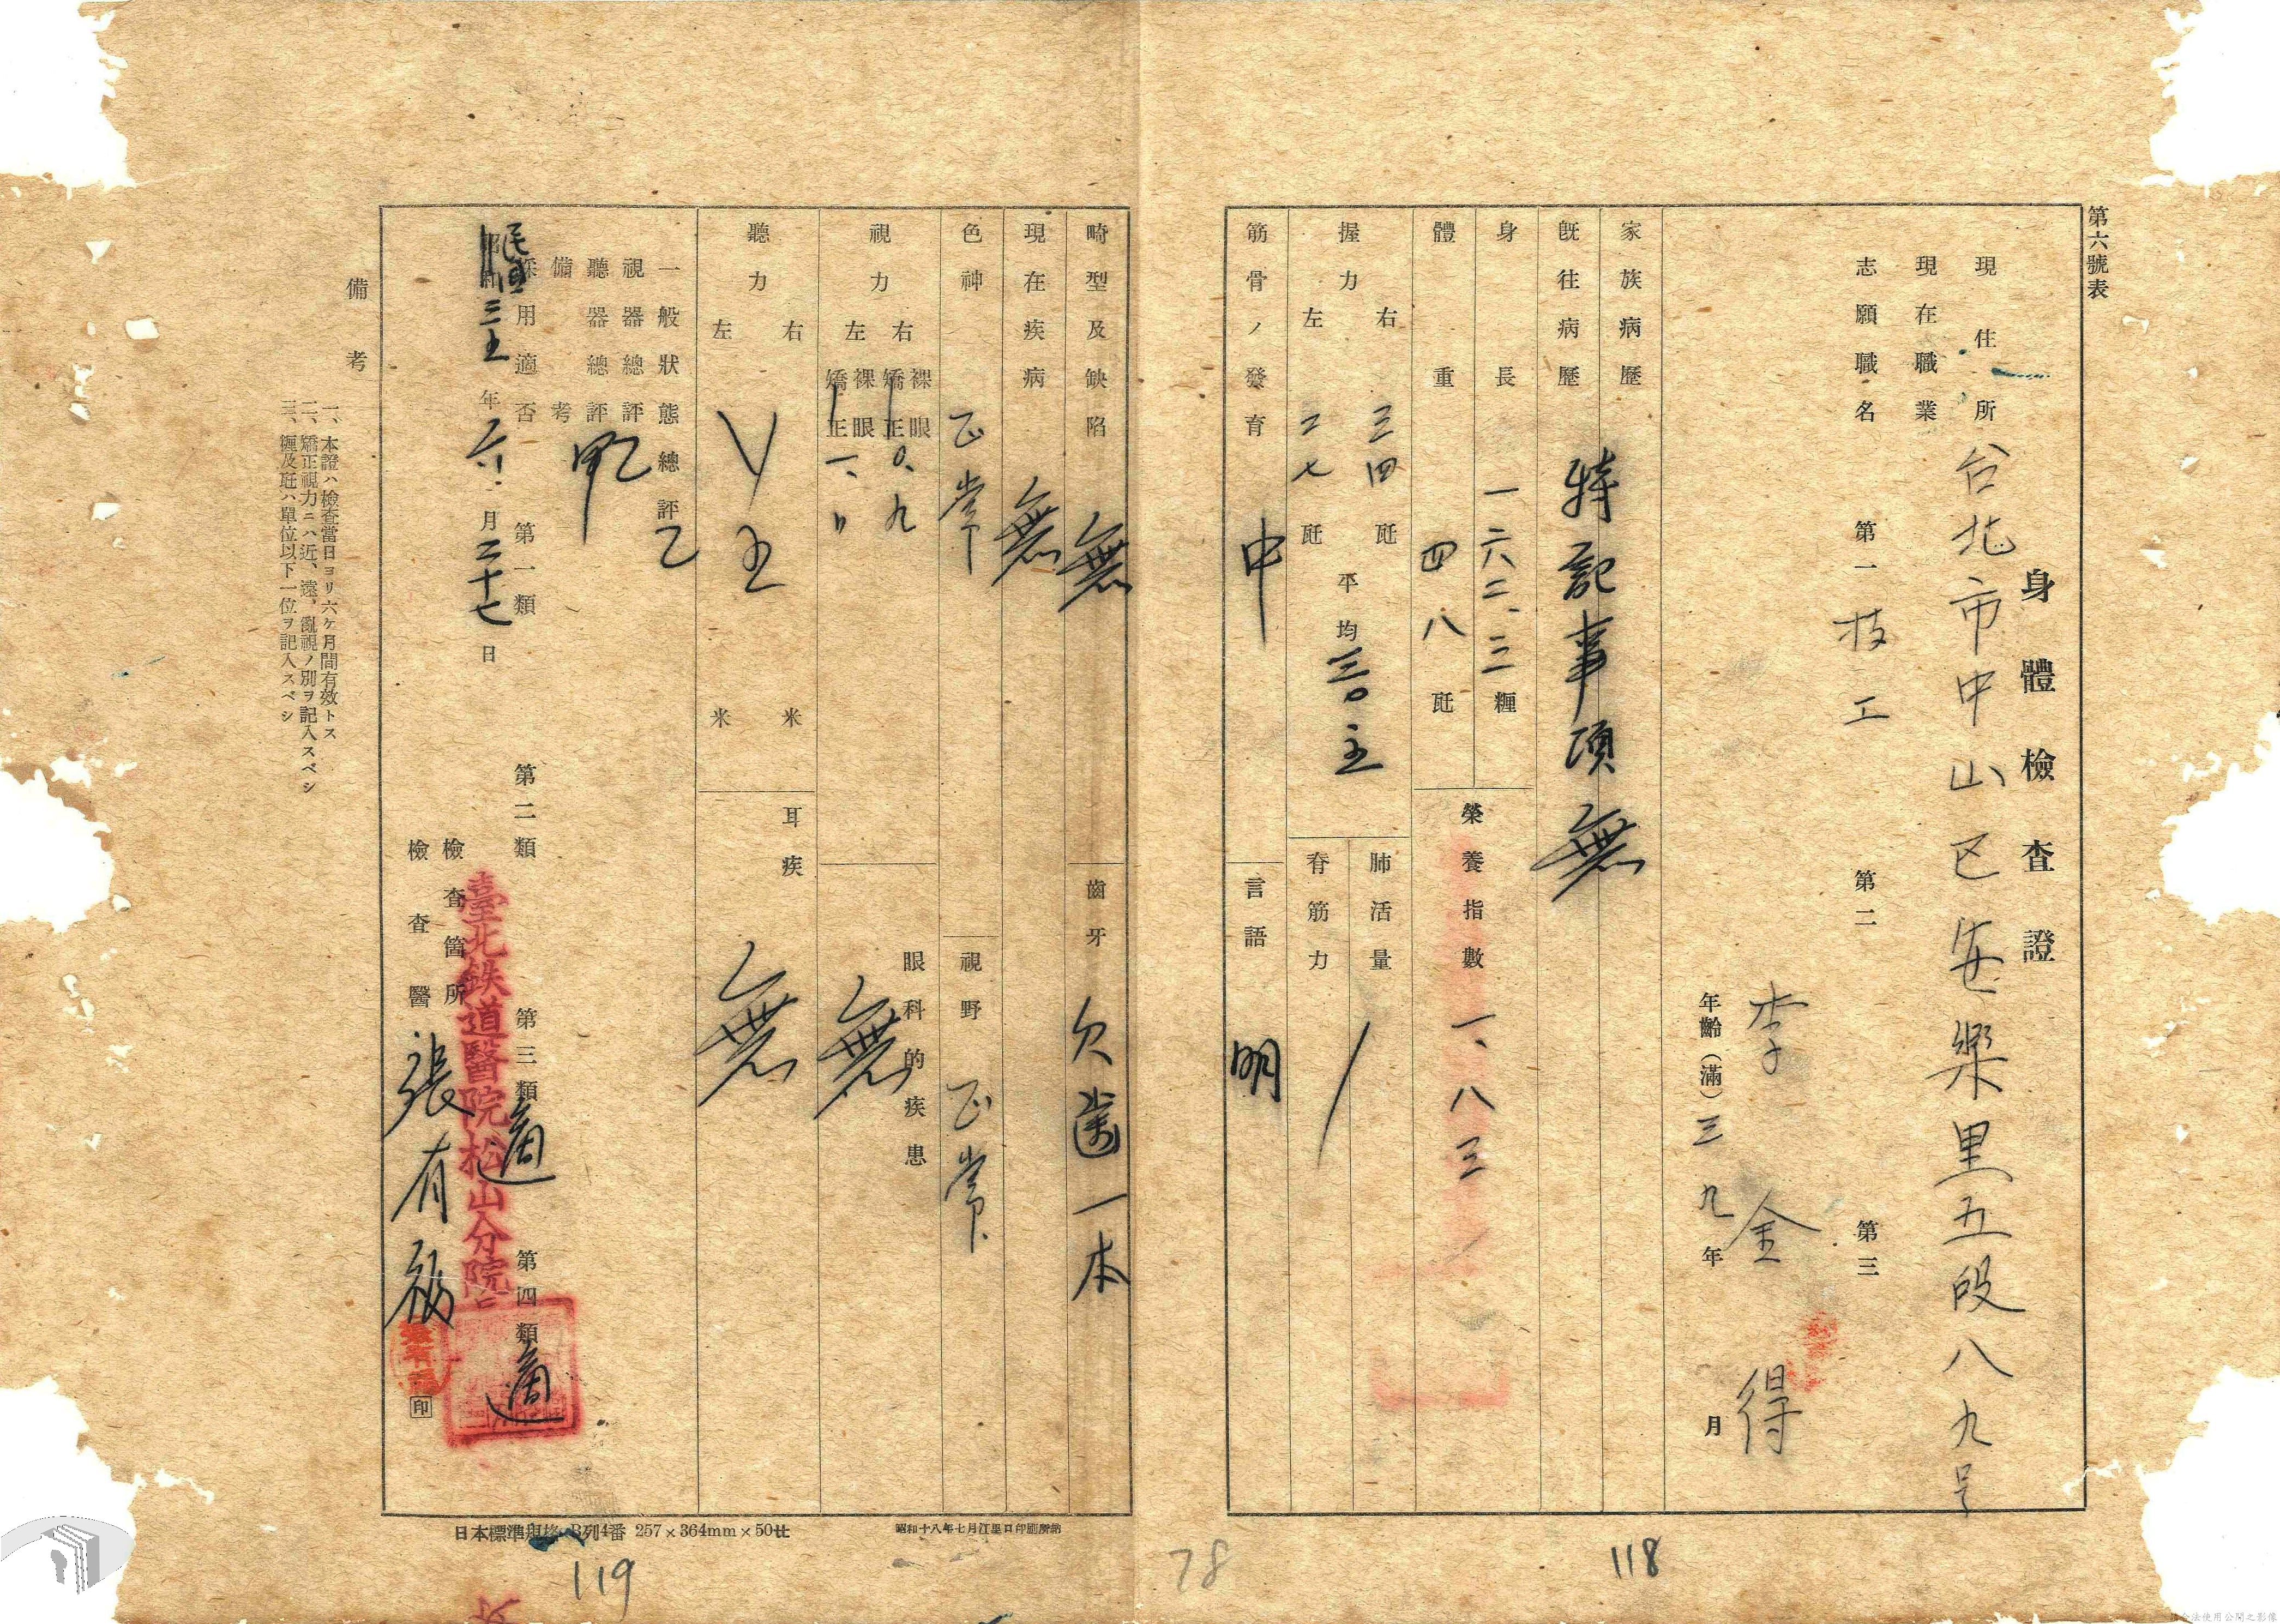 第六號表
身體檢查證
現住所 台北市中山区安樂里五段八九号
現在職業
志願職名 第一 技工 第二 第三
李金得
年齡(滿)三九年 月
家族病歷
既往病歷
特記事項無
身長 一六二、三糎
體重 四八瓩
榮養指數 一、八三
握力 右 三四瓩 左 二七瓩 平均 三〇、五
肺活量
脊筋力
筋骨ノ發育 中
言語 明
畸型及缺陷 無
齒牙 欠歯一本
現在疾病 無
色神 正常
視野 正常
視力 右 裸眼 0.九 矯正
左 裸眼 一、 矯正
眼科的疾患 無
聽力 右 五 米 左 米
耳疾 無
一般狀態總評 乙
視器總評 乙
聽器總評 甲
備考
採用適否 第一類 第二類 第三類 適 第四類 適
民國三五年六月二十七日
檢查箇所 臺北鉄道醫院松山分院
檢查醫 張有福 印
備考
一、本證ハ檢查當日ヨリ六ケ月間有效トス
二、矯正視力ニハ近、遠、亂視ノ別ヲ記入スベシ
三、糎及瓩ハ單位以下一位ヲ記入スベシ
日本標準規格 B列4番 257×364mm×50廿
昭和十八年七月江里口印刷所納
119
78
118